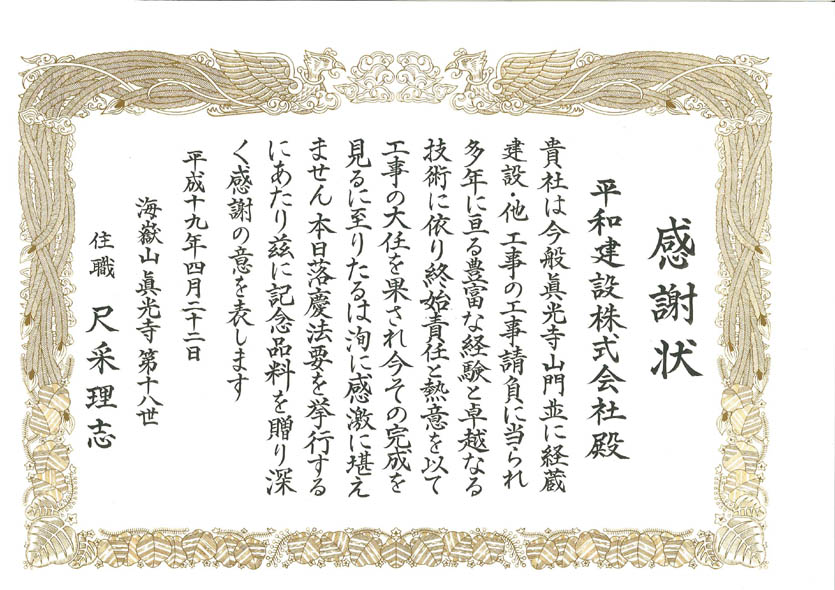 感謝状
平和建設株式会社殿
貴社は今般眞光寺山門並に経蔵
建設・他 工事の工事請負に当られ
多年に亘る豊富な経験と卓越なる
技術に依り終始責任と熱意を以て
工事の大任を果され今その完成を
見るに至りたるは洵に感激に堪え
ません 本日落慶法要を挙行する
にあたり茲に記念品料を贈り深
く感謝の意を表します
平成十九年四月二十二日
海嶽山眞光寺 第十八世
住職 尺采理志